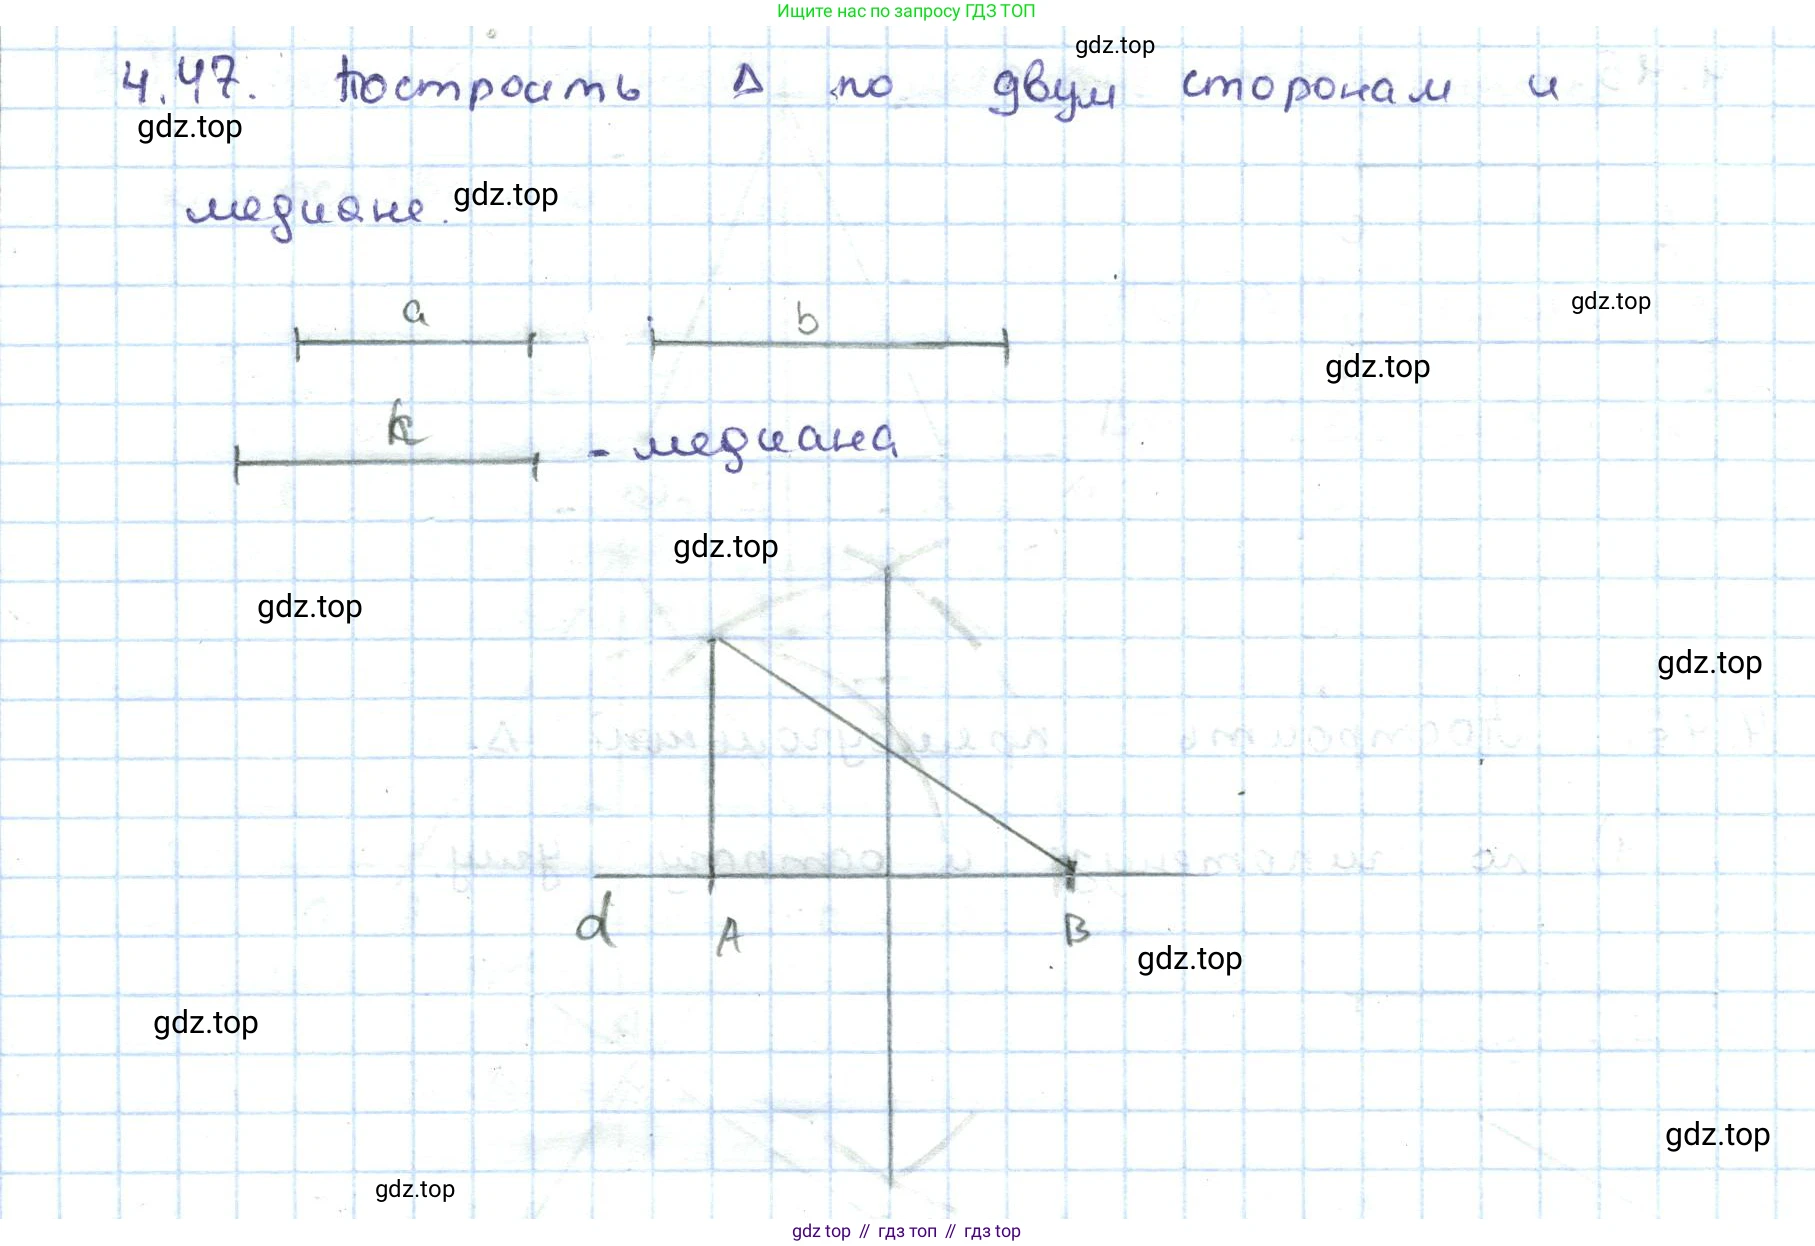 Ищите нас по запросу ГДЗ ТОП
gdz.top
4.47. Построить Δ по двум сторонам и
gdz.top
медиане.
gdz.top
a
b
gdz.top
gdz.top
k
- медиана
gdz.top
gdz.top
gdz.top
d
A
B
gdz.top
gdz.top
gdz.top
gdz.top
gdz top // гдз топ // гдз top